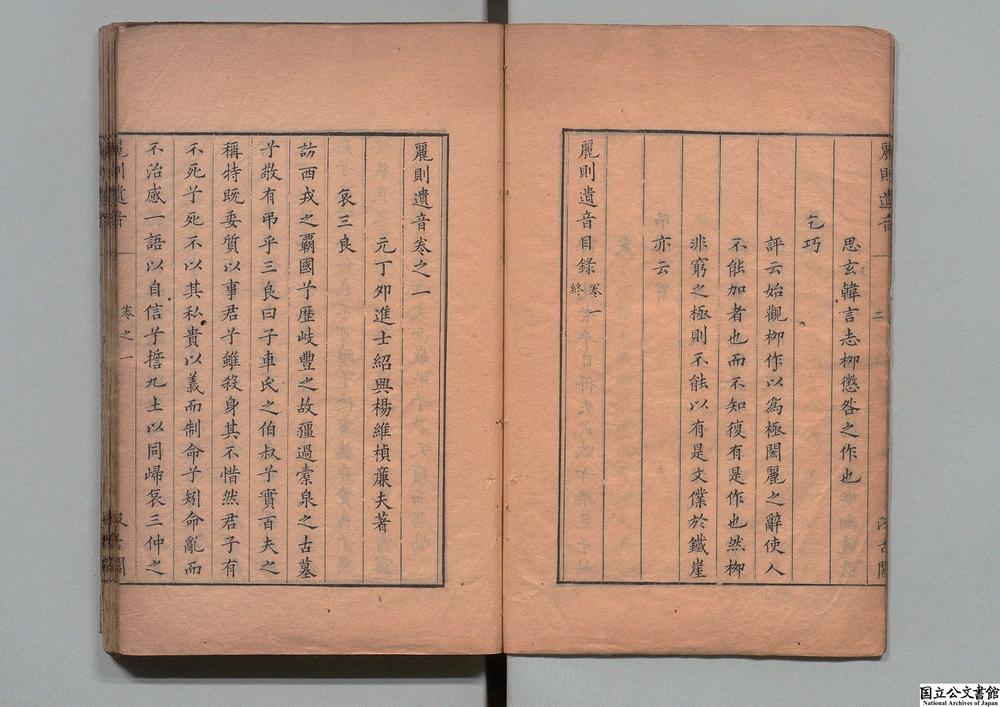 麗則遺音
二
汲古閣
思玄韓言志栁懲咎之作也
乞巧
評云始觀栁作以爲極閎麗之辭使人
不能加者也而不知復有是作也然栁
非窮之極則不能以有是文僕於鐵崖
亦云
麗則遺音目錄 卷一終
麗則遺音卷之一
元丁夘進士紹興楊維楨廉夫著
哀三良
訪西戎之覇國兮歷岐豐之故疆過橐泉之古墓
兮敢有弔乎三良曰子車氏之伯叔兮實百夫之
稱特旣委質以事君兮雖殺身其不惜然君子有
不死兮死不以其私貴以義而制命兮矧命亂而
不治感一語以自信兮誓九土以同歸哀三仲之
麗則遺音
卷之一
一
汲古閣
国立公文書館
National Archives of Japan